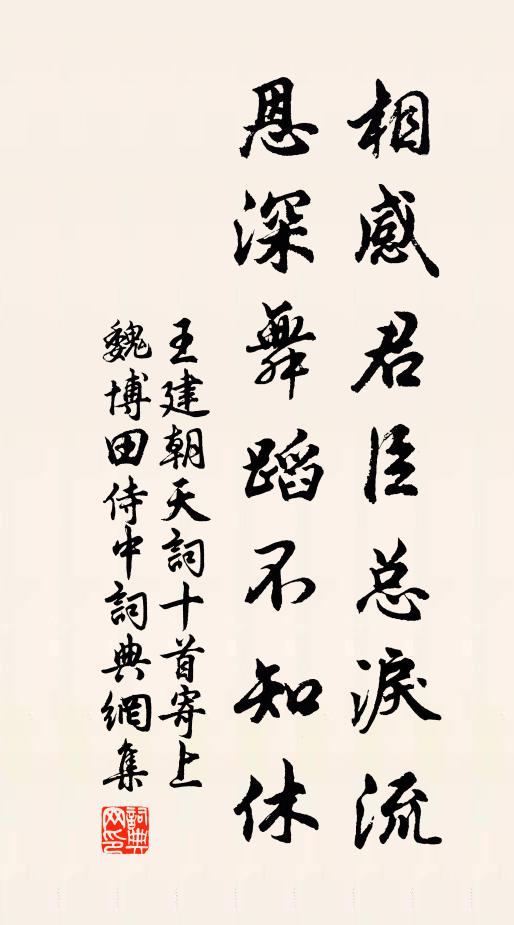 相感君臣总淚流
恩深舞蹈不知休
王建朝天詞十首寄上
魏博田侍中詞典網集
詞典
网印